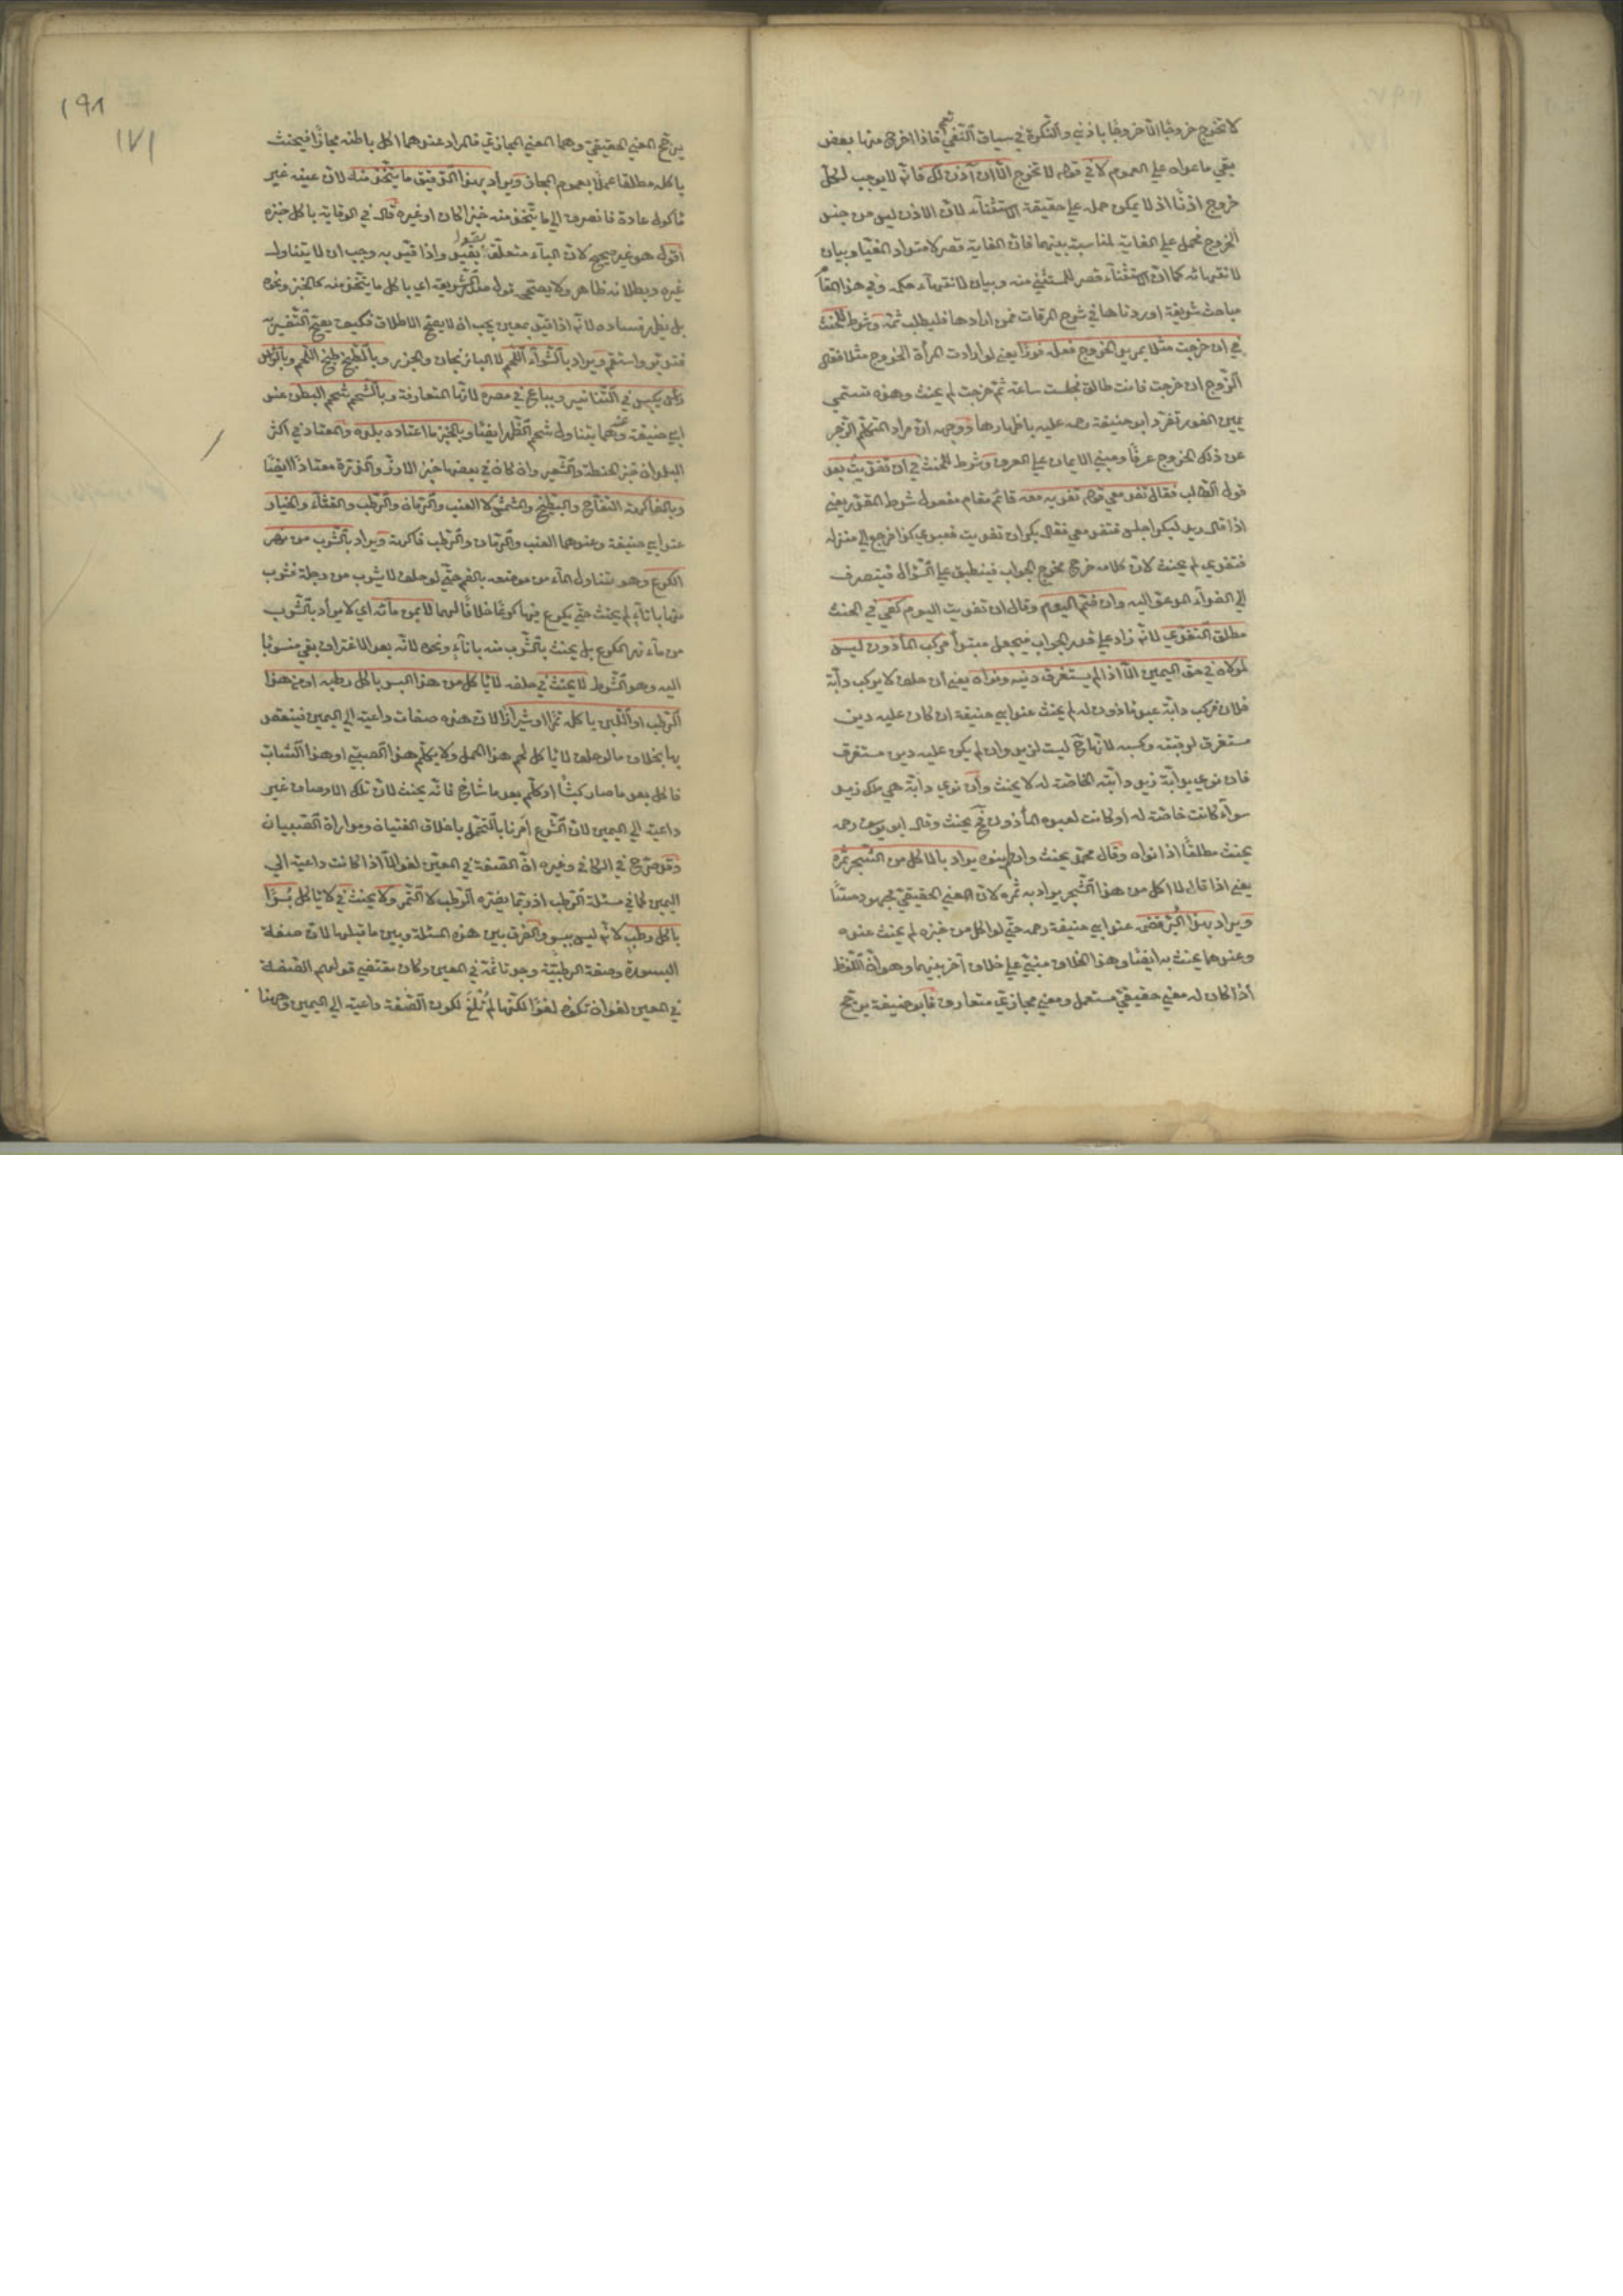 لا تخرج خروجا الا خروجا باذني والنكرة في سياق النفي تعم فاذا اخرج منها بعض
بقي ما عداه علي العموم لا في قوله لا تخرج الا ان آذن لك فانه لا يوجب لكل
خروج اذنا اذ لا يمكن حمله علي حقيقة الاستثناء لان الاذن ليس من جنس
الخروج فحمل علي الغاية لمناسبة بينهما فان الغاية قصر لامتداد المغيا وبيان
لانتهائه كما ان الاستثناء قصر للمستثني منه وبيان لانتهاء حكمه وفي هذا المقام
مباحث شريفة اوردناها في شرح المرقات فمن ارادها فليطلب ثمه وشرط للحنث
في ان خرجت مثلا لمريد الخروج فعله فورا يعني لو ارادت المرأة الخروج مثلا فقال
الزوج ان خرجت فانت طالق فجلست ساعة ثم خرجت لم يحنث وهذه تسمي
يمين الفور تفرد ابو حنيفة رحمه عليه باظهارها ووجهه ان مراد المتكلم الزجر
عن ذلك الخروج عرفا ومبني الايمان علي العرف وشرط للحنث في ان تغديت بعد
قول الطالب فقال تغد معي قوله تغديه معه قائم مقام مفعول شرط المقدر يعني
اذا قال زيد لبكر اجلس فتغد معي فقال بكر ان تغديت فعبدي كذا فرجع الي منزله
فتغدي لم يحنث لان كلامه خرج مخرج الجواب فينطبق علي السؤال فينصرف
الي الغداء المدعو اليه وان ضم اليوم وقال ان تغديت اليوم كفي في الحنث
مطلق التغدي لانه زاد علي قدر الجواب فيجعل مبتدأ مركب المأذون ليس
لمولاه في حق اليمين الا اذا لم يستغرق دينه ونواه يعني ان حلف لا يركب دابة
فلان فركب دابة عبد ماذون له لم يحنث عند ابي حنيفة ان كان عليه دين
مستغرق لرقبته وكسبه لانها ح ليست لزيد وان لم يكن عليه دين مستغرق
فان نوي بدابة زيد دابته الخاصة له لا يحنث وان نوي دابة هي ملك زيد
سواء كانت خاصة له او كانت لعبده المأذون ح يحنث وقال ابو يوسف رحمه
يحنث مطلقا اذا نواه وقال محمد يحنث وان لم ينوه يراد بالاكل من الشجر ثمره
يعني اذا قال لا اكل من هذا الشجر يراد به ثمره لان المعني الحقيقي مهجور حسا
ويراد بهذا البر قضمه عند ابي حنيفة رحمه حتي لو اكل من خبزه لم يحنث عنده
وعندهما يحنث به ايضا وهذا الخلاف مبني علي خلاف آخر بينهما وهو ان اللفظ
اذا كان له معني حقيقي مستعمل ومعني مجازي متعارف فابو حنيفة يرجح
١٩٨
١٧١
يرجح المعني الحقيقي وهما المعني المجازي فالمراد عندهما اكل باطنه مجازا فيحنث
باكله مطلقا عملا بعموم المجاز ويراد بهذا الدقيق ما يتخذ منه لان عينه غير
مأكول عادة فانصرف الي ما يتخذ منه خبزا كان او غيره قال في الوقاية باكل خبزه
اقول هو غير صحيح لان الباء متعلق بقيد بقيد واذا قيد به وجب ان لا يتناول
غيره وبطلانه ظاهر ولا يصح قول صدر الشريعة اي باكل ما يتخذ منه كالخبز ونحوه
بل يظهر فساده لانه اذا قيد بمعين يجب ان لا يصح الاطلاق فكيف يصح التفسير به
فتدبر واستقم ويراد بالشواء اللحم لا الباذنجان والجزر وبالطبيخ طبخ اللحم وبالراس
رأس يكبس في التنانير ويباع في مصره لانها المتعارفة وبالشحم شحم البطن عند
ابي حنيفة وعندهما يتناول شحم الظهر ايضا وبالخبز ما اعتاده بلده والمعتاد في اكثر
البلدان خبز الحنطة والشعير وان كان في بعضها خبز الارز والذرة معتادا ايضا
وبالفاكهة التفاح والبطيخ والمشمش لا العنب والرمان والرطب والقثاء والخيار
عند ابي حنيفة وعندهما العنب والرمان والرطب فاكهة ويراد بالشرب من نهر
الكرع وهو تناول الماء من موضعه بالفم حتي لو حلف لا يشرب من دجلة فشرب
منها باناء لم يحنث حتي يكرع فيها كرعا خلافا لهما لا من مائه اي لا يراد بالشرب
من ماء نهر الكرع بل يحنث بالشرب منه باناء ونحوه لانه بعد الاغتراف بقي منسوبا
اليه وهو الشرط لا يحنث في حلفه لا ياكل من هذا البسر باكل رطبه او من هذا
الرطب او اللبن باكله تمرا او شيرازا لان هذه صفات داعية الي اليمين فيتقيد
بها بخلاف ما لو حلف لا ياكل لحم هذا الحمل ولا يكلم هذا الصبي او هذا الشاب
فاكل بعد ما صار كبشا او كلم بعد ما شاخ فانه يحنث لان تلك الاوصاف غير
داعية الي اليمين لان الشرع امرنا بالتحمل باخلاق الفتيان ومداراة الصبيان
وقد صرح في الكافي وغيره ان الصفة في المعين لغو الا اذا كانت داعية الي
اليمين كما في مسئلة الرطب اذ ربما يضره الرطب لا التمر ولا يحنث في لا ياكل بسرا
باكل رطب لانه ليس ببسر والفرق بين هذه المسئلة وبين ما قبلها لان صفة
البسورة وصفة الرطبية وجدتا ثمة في المعين وكان مقتضي قولهم الصفة
في المعين لغو ان تكون لغوا لكنها لم تلغ لكون الصفة داعية الي اليمين وههنا